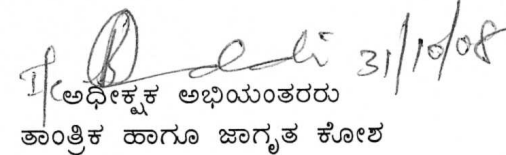 31/10/08
I/c ಅಧೀಕ್ಷಕ ಅಭಿಯಂತರರು
ತಾಂತ್ರಿಕ ಹಾಗೂ ಜಾಗೃತ ಕೋಶ